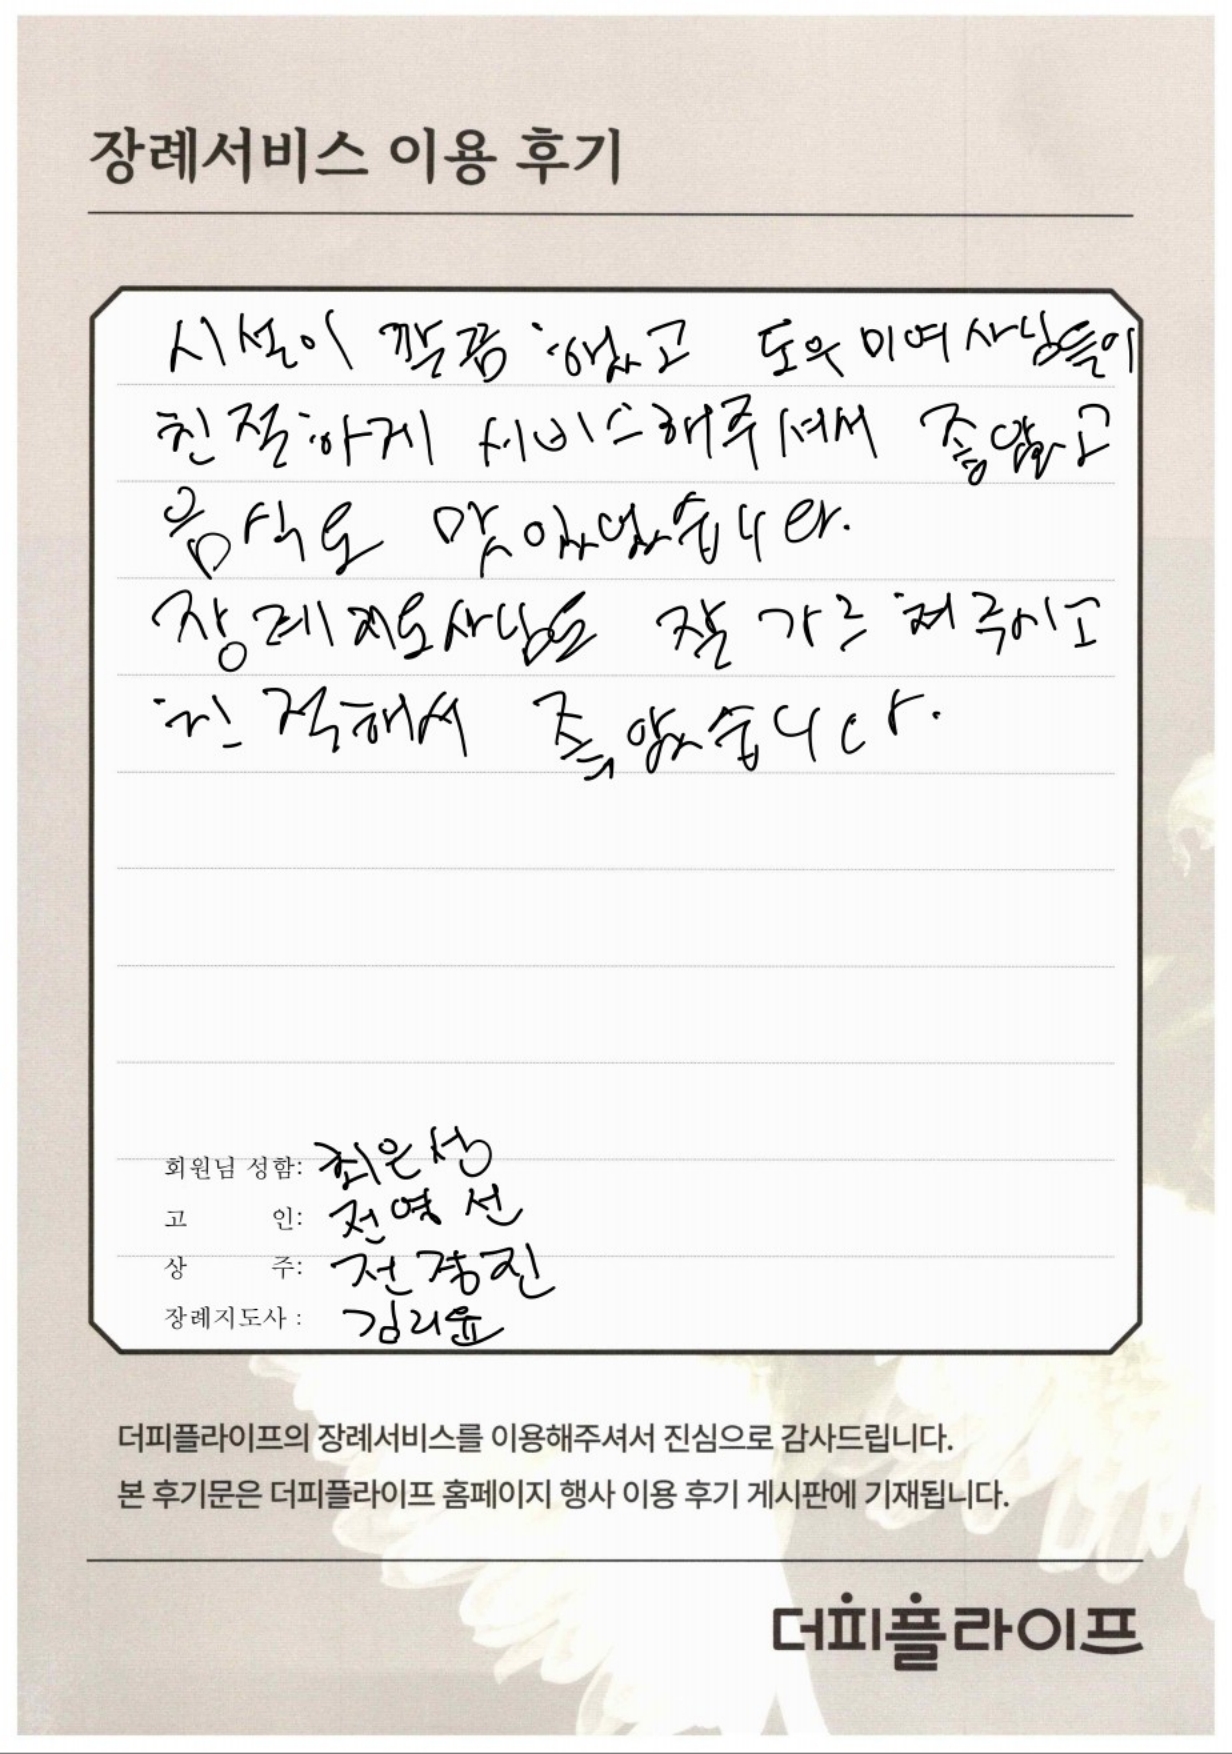 장례서비스 이용 후기
시설이 깔끔했고 도우미여사님들이
친절하게 서비스해주셔서 좋았고
음식도 맛있었습니다.
장례지도사님도 잘 가르쳐주시고
친절해서 좋았습니다.
회원님 성함: 최은성
고 인: 전영선
상 주: 전경진
장례지도사 : 김리윤
더피플라이프의 장례서비스를 이용해주셔서 진심으로 감사드립니다.
본 후기문은 더피플라이프 홈페이지 행사 이용 후기 게시판에 기재됩니다.
더피플라이프